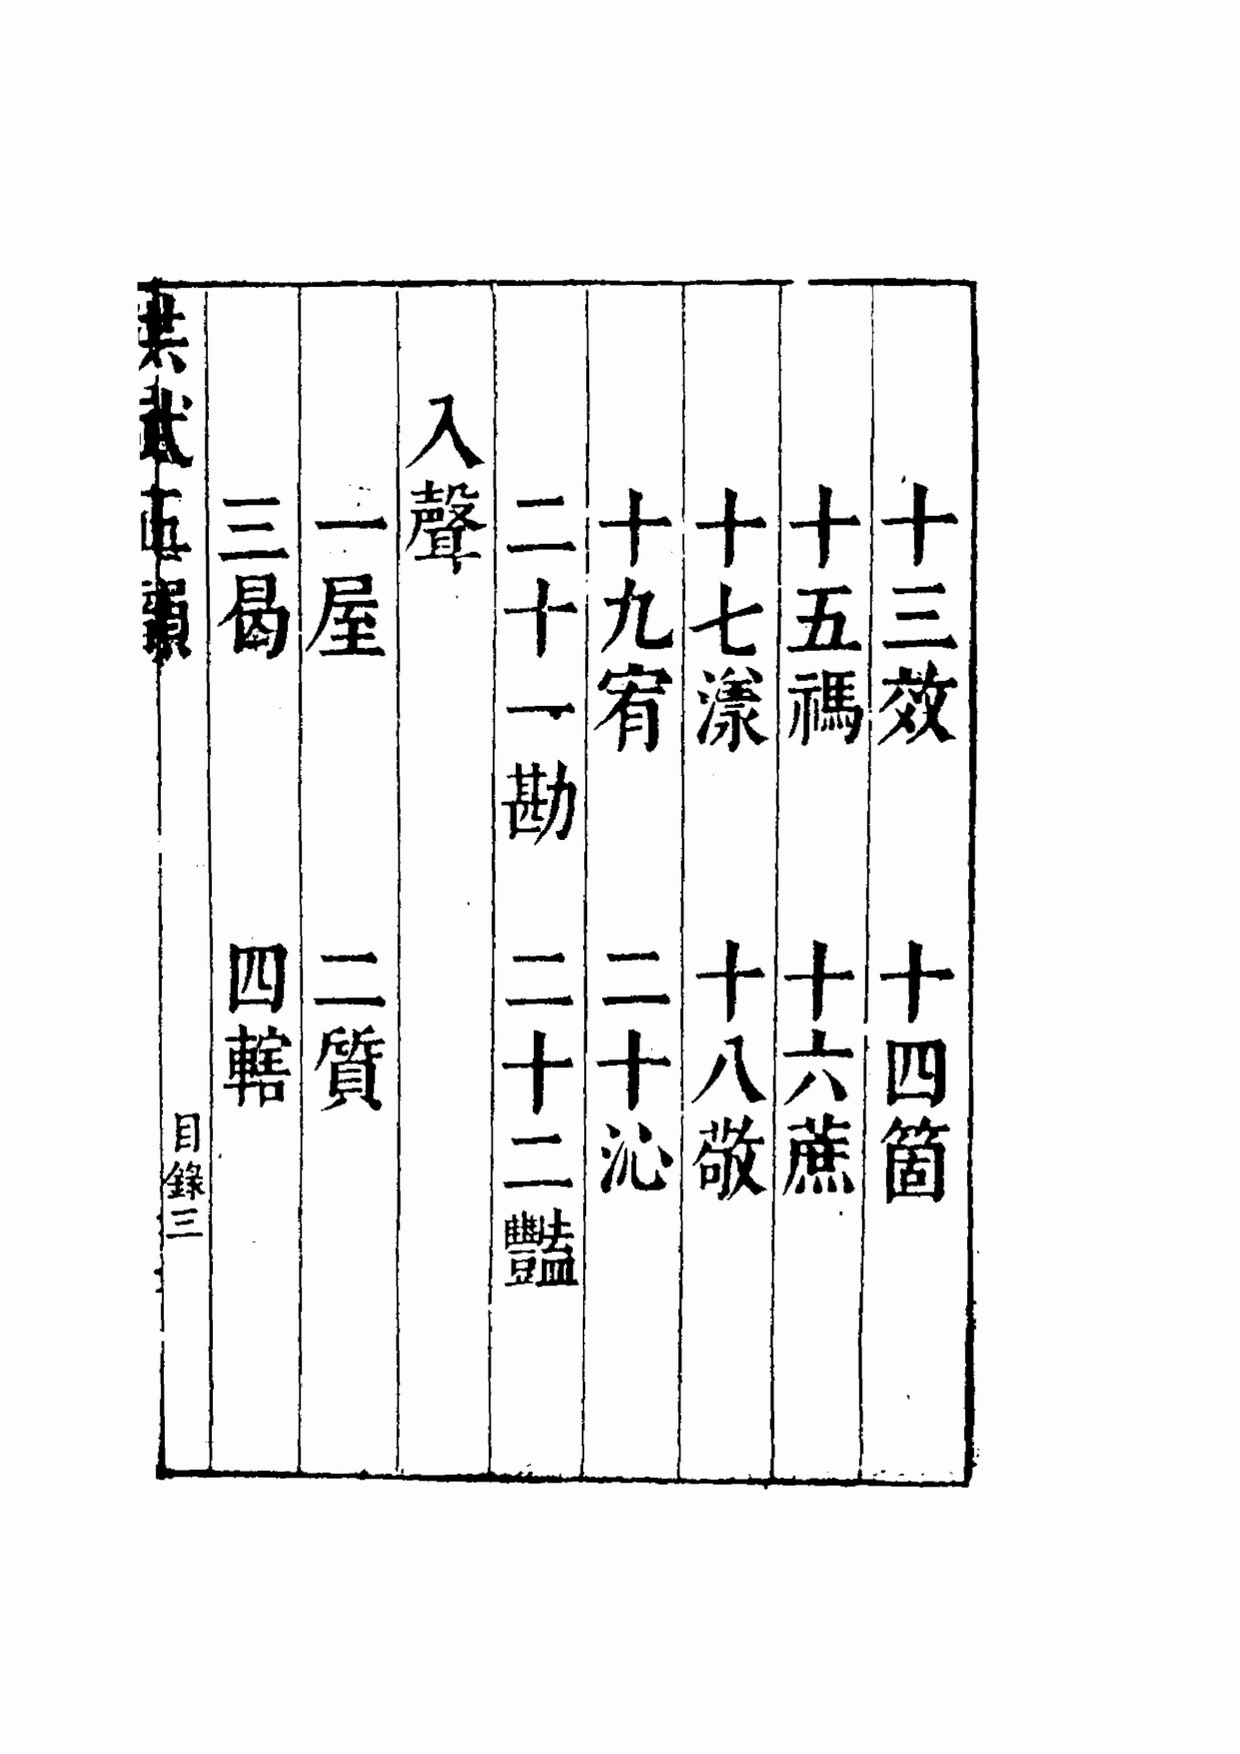 十三效　十四箇
十五禡　十六蔗
十七漾　十八敬
十九宥　二十沁
二十一勘　二十二豔
入聲
一屋　二質
三曷　四轄
洪武正韻　目錄三